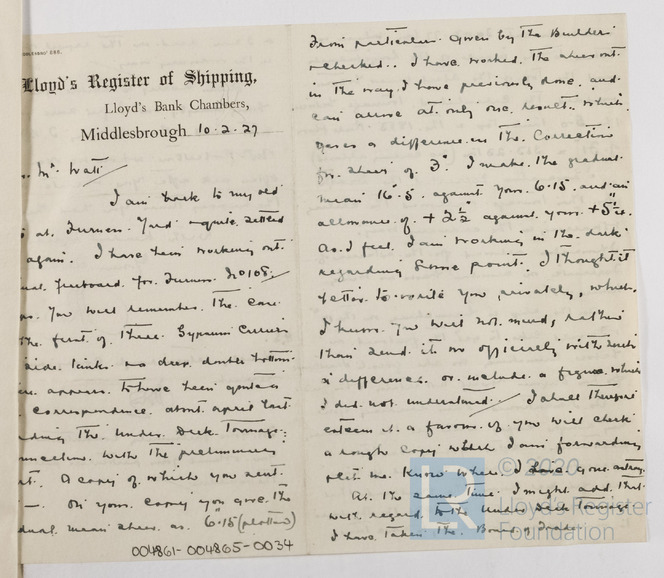 Lloyd's Register of Shipping,
Lloyd's Bank Chambers,
Middlesbrough 10.2.27
Mr Watt
I am back to my old
at Furness Yard quite settled
again. I have been working out
freeboard for Furness No 108.
You will remember the case
the first of three Gypsum Carriers
side tanks no deep double bottom
appears to have been
correspondence about april last
the Under Deck Tonnage
connection with the preliminary
A copy of which you sent
On your copy you give the
mean sheer as 6.15 (plotted)
004861-004865-0034
From particulars given by the Builders
checked. I have worked the sheer out
in the way I have previously done and
can arrive at only one result which
gives a difference in the correction
for sheer of 3". I make the gradual
mean 16.5 against yours 6.15 and an
allowance of + 2½" against yours + 5½"
As I feel I am working in the dark
regarding some point, I thought it
better to write you privately, which
I know you will not mind, rather
than send it in officially with such
a difference or include a figure which
I did not understand. I shall therefore
esteem it a favour if you will check
a rough copy which I am forwarding
& let me know where I have gone astray.
At the same time I might add that
with regard to the Under Deck Tonnage
I have taken the Board of Trade
© 2020
LR
Lloyd's Register
Foundation